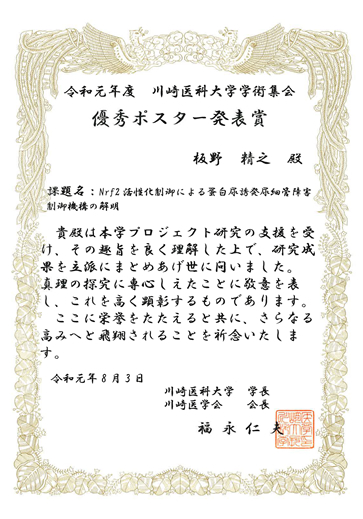 令和元年度　川崎医科大学学術集会
優秀ポスター発表賞
板野　精之　殿
課題名：Nrf2活性化制御による蛋白尿誘発尿細管障害
制御機構の解明
貴殿は本学プロジェクト研究の支援を受
け、その趣旨を良く理解した上で、研究成
果を立派にまとめあげ世に問いました。
真理の探究に専心しえたことに敬意を表
し、これを高く顕彰するものであります。
ここに栄誉をたたえると共に、さらなる
高みへと飛翔されることを祈念いたしま
す。
令和元年8月3日
川崎医科大学　学長
川崎医学会　会長
福永仁夫